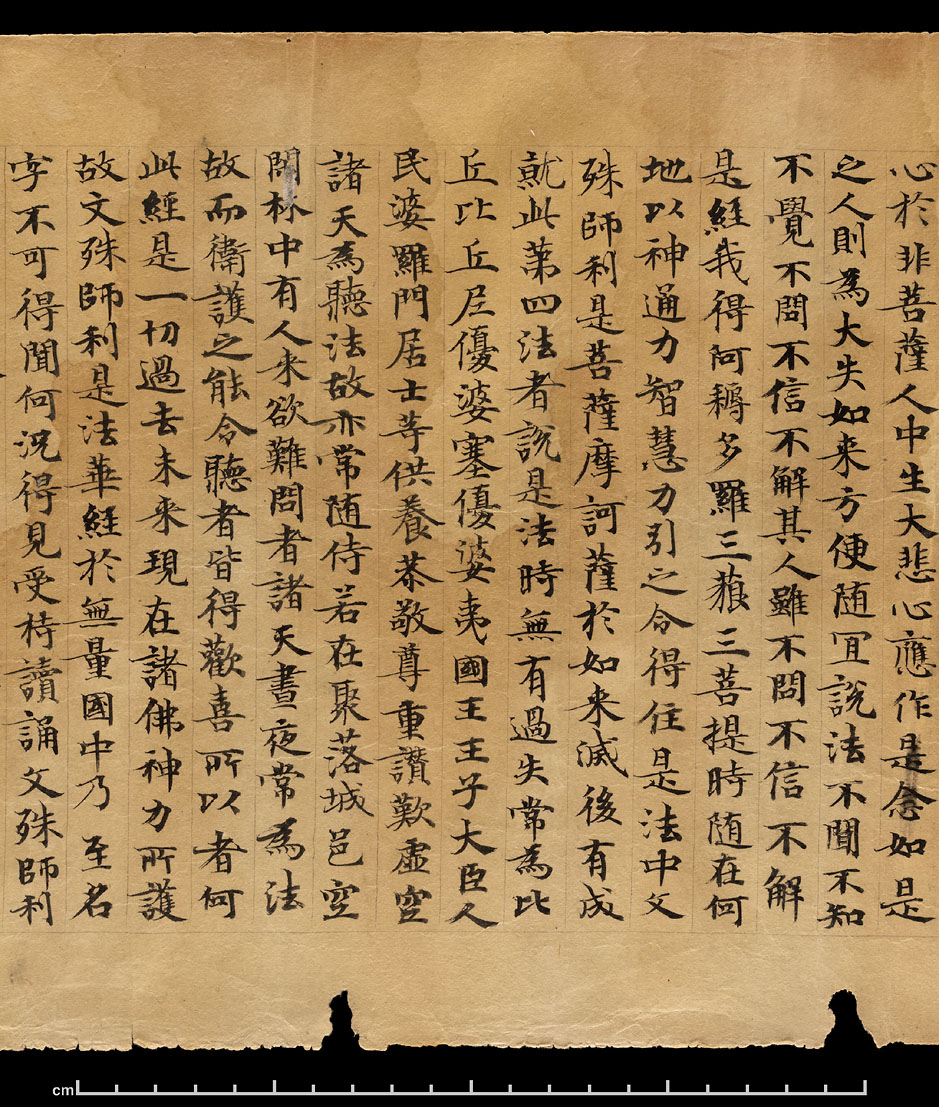 心於非菩薩人中生大悲心應作是念如是
之人則為大失如来方便随冝說法不聞不知
不覺不問不信不解其人雖不問不信不解
是經我得阿耨多羅三藐三菩提時随在何
地以神通力智慧力引之令得住是法中文
殊師利是菩薩摩訶薩於如来滅後有成
就此苐四法者說是法時無有過失常為比
丘比丘尼優婆塞優婆夷國王王子大臣人
民婆羅門居士等供養恭敬尊重讚歎虛空
諸天為聽法故亦常随侍若在聚落城邑空
閑林中有人来欲難問者諸天晝夜常為法
故而衞護之能令聽者皆得歡喜所以者何
此經是一切過去未来現在諸佛神力所護
故文殊師利是法華經於無量國中乃至名
字不可得聞何況得見受持讀誦文殊師利